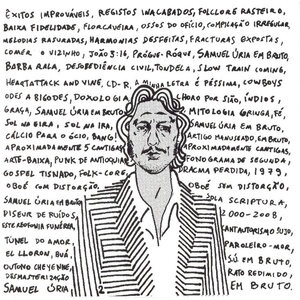 ÊXITOS IMPROVÁVEIS, REGISTOS INACABADOS, FOLCLORE RASTEIRO,
BAIXA FIDELIDADE, FLORCAVEIRA, OSSOS DO OFÍCIO, COMPILAÇÃO IRREGULAR,
MELODIAS RASURADAS, HARMONIAS DESFEITAS, FRACTURAS EXPOSTAS,
COMER O VIZINHO, JOÃO 3:16, PRÓGUE-RÓQUE, SAMUEL ÚRIA EM BRUTO,
BARBA RALA, DESOBEDIÊNCIA CIVIL, TONDELA, SLOW TRAIN COMING,
HEARTATTACK AND VINE, CD-R, A MINHA LETRA É PÉSSIMA, COWBOYS
ODES A BIGODES, DOXOLOGIA CHORO POR SIÃO, ÍNDIOS,
GRAÇA, SAMUEL ÚRIA EM BRUTO, MITOLOGIA GRINGA, FÉ,
SOL NA EIRA, SOL NA IRA, SAMUEL ÚRIA EM BRUTO,
CÁLCIO PARA O OSSO, BANG! ARTIGO MANUSEADO, EM BRUTO,
APROXIMADAMENTE 5 CANTIGAS APROXIMADAMENTE CANTIGAS,
ARTE-BAIXA, PUNK DE ANTIOQUIA FONOGRAMA DE SEGUNDA,
GOSPEL TISNADO, FOLK-CORE DRACMA PERDIDA, 1979,
OBOÉ COM DISTORÇÃO, OBOÉ SEM DISTORÇÃO,
SAMUEL ÚRIA EM BRUTO SOLA SCRIPTURA,
DISEUR DE RUÍDOS, 2000-2008,
ESTEREOFONIA FUNÉREA, ANTIAUTORISMO SUJO,
TÚNEL DO AMOR, PAROLEIRO-MOR,
EL LLORON, BUÁ, SÚ EM BRUTO,
OUTONO CHEYENNE, RATO REDIMIDO,
DESMASTERIZAÇÃO EM BRUTO.
SAMUEL ÚRIA,